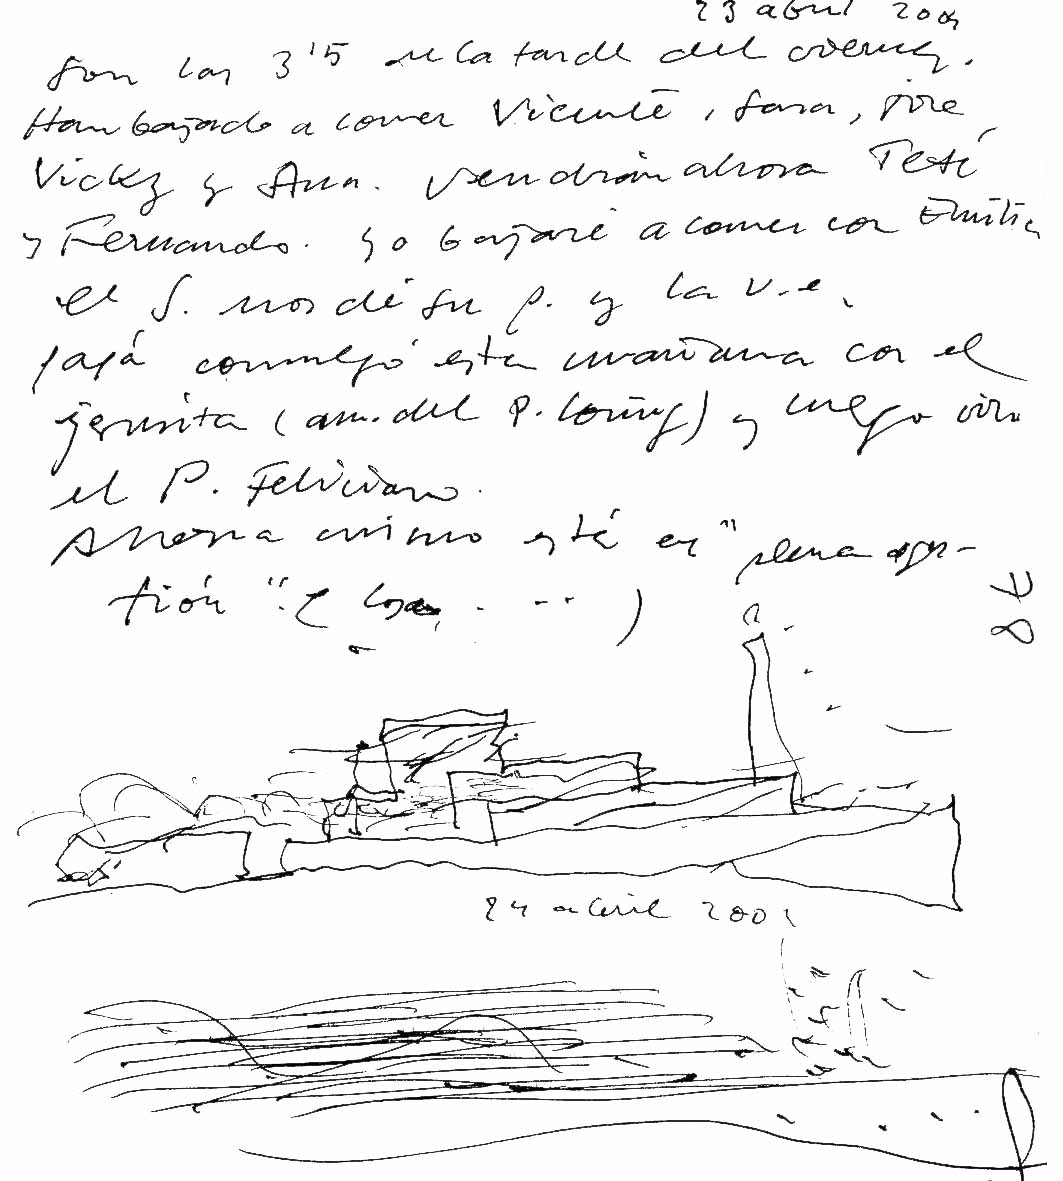 23 abril 200
Son las 3'5 de la tarde del viernes.
Han bajado a comer Vicente, Sara, Jose
Vicky y Ana. Vendrán ahora Teté
y Fernando. Yo bajaré a comer con Emilia
el S. nos dé su p. y la v.e.
papá comulgó esta mañana con el
jesuita (am. del P. Loring) y luego vino
el P. Feliciano.
Ahora mismo está en "plena agi-
tión". (
24 abril 200